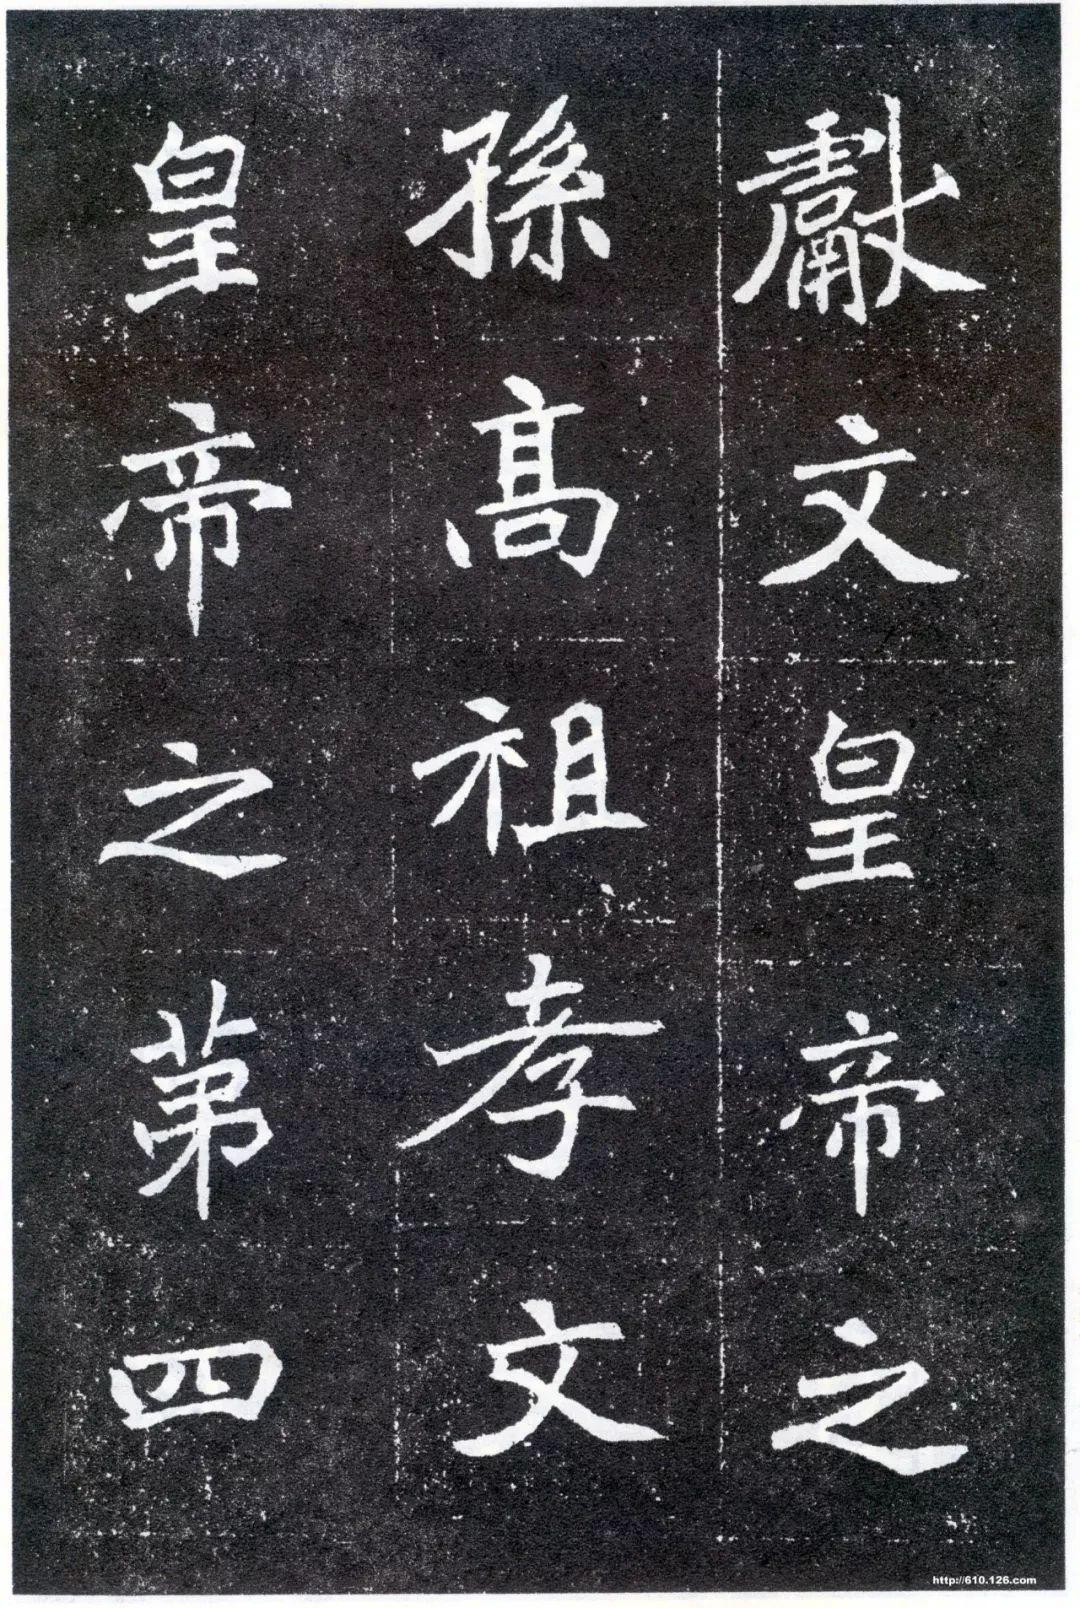 獻文皇帝之
孫高祖孝文
皇帝之苐四
http://610.126.com